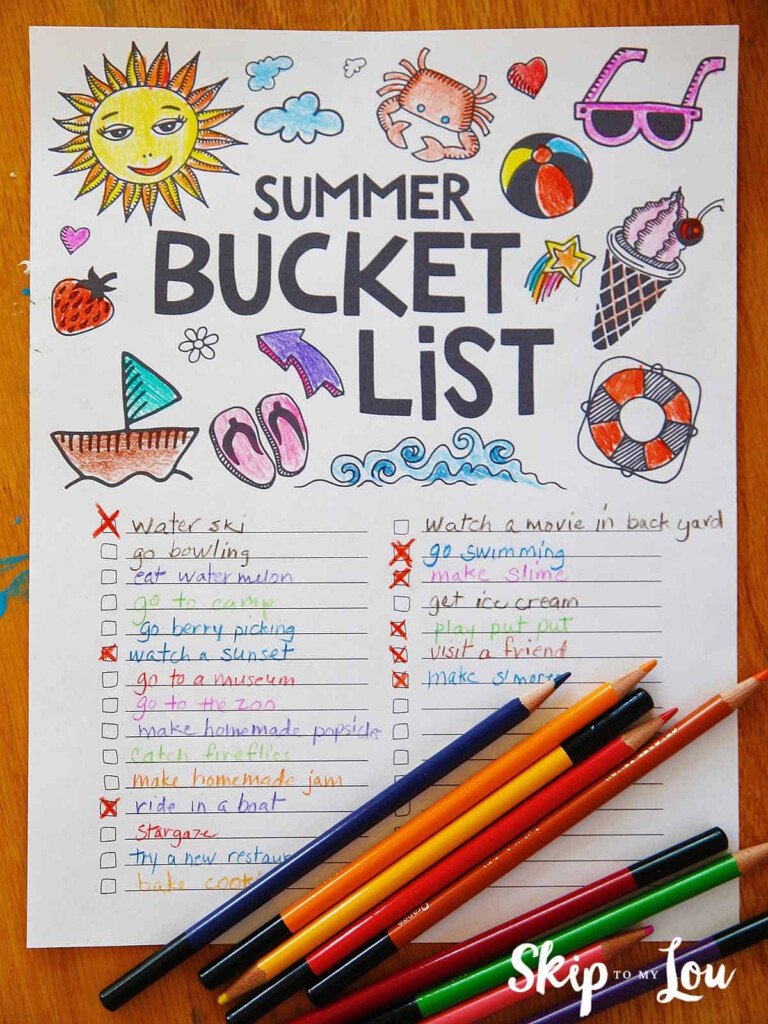 SUMMER
BUCKET
LiST
water ski
go bowling
eat watermelon
go to camp
go berry picking
watch a sunset
go to a museum
go to the zoo
make homemade popsicle
catch fireflies
make homemade jam
ride in a boat
stargaze
try a new
bake
watch a movie in back yard
go swimming
make slime
get ice cream
play put put
visit a friend
make s'mores
SKIP TO MY LOU